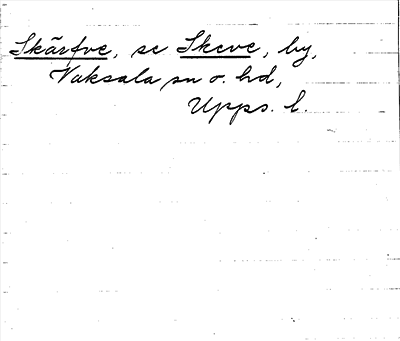 Skärfve, se Skeve, by,
Vaksala sn o. hd,
Upps. l.